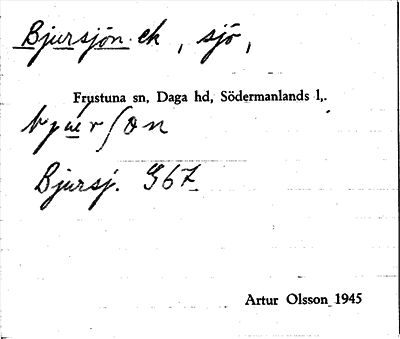 Bjursjön ek, sjö,
Frustuna sn, Daga hd, Södermanlands l,.
Bjursj. 967
Artur Olsson 1945